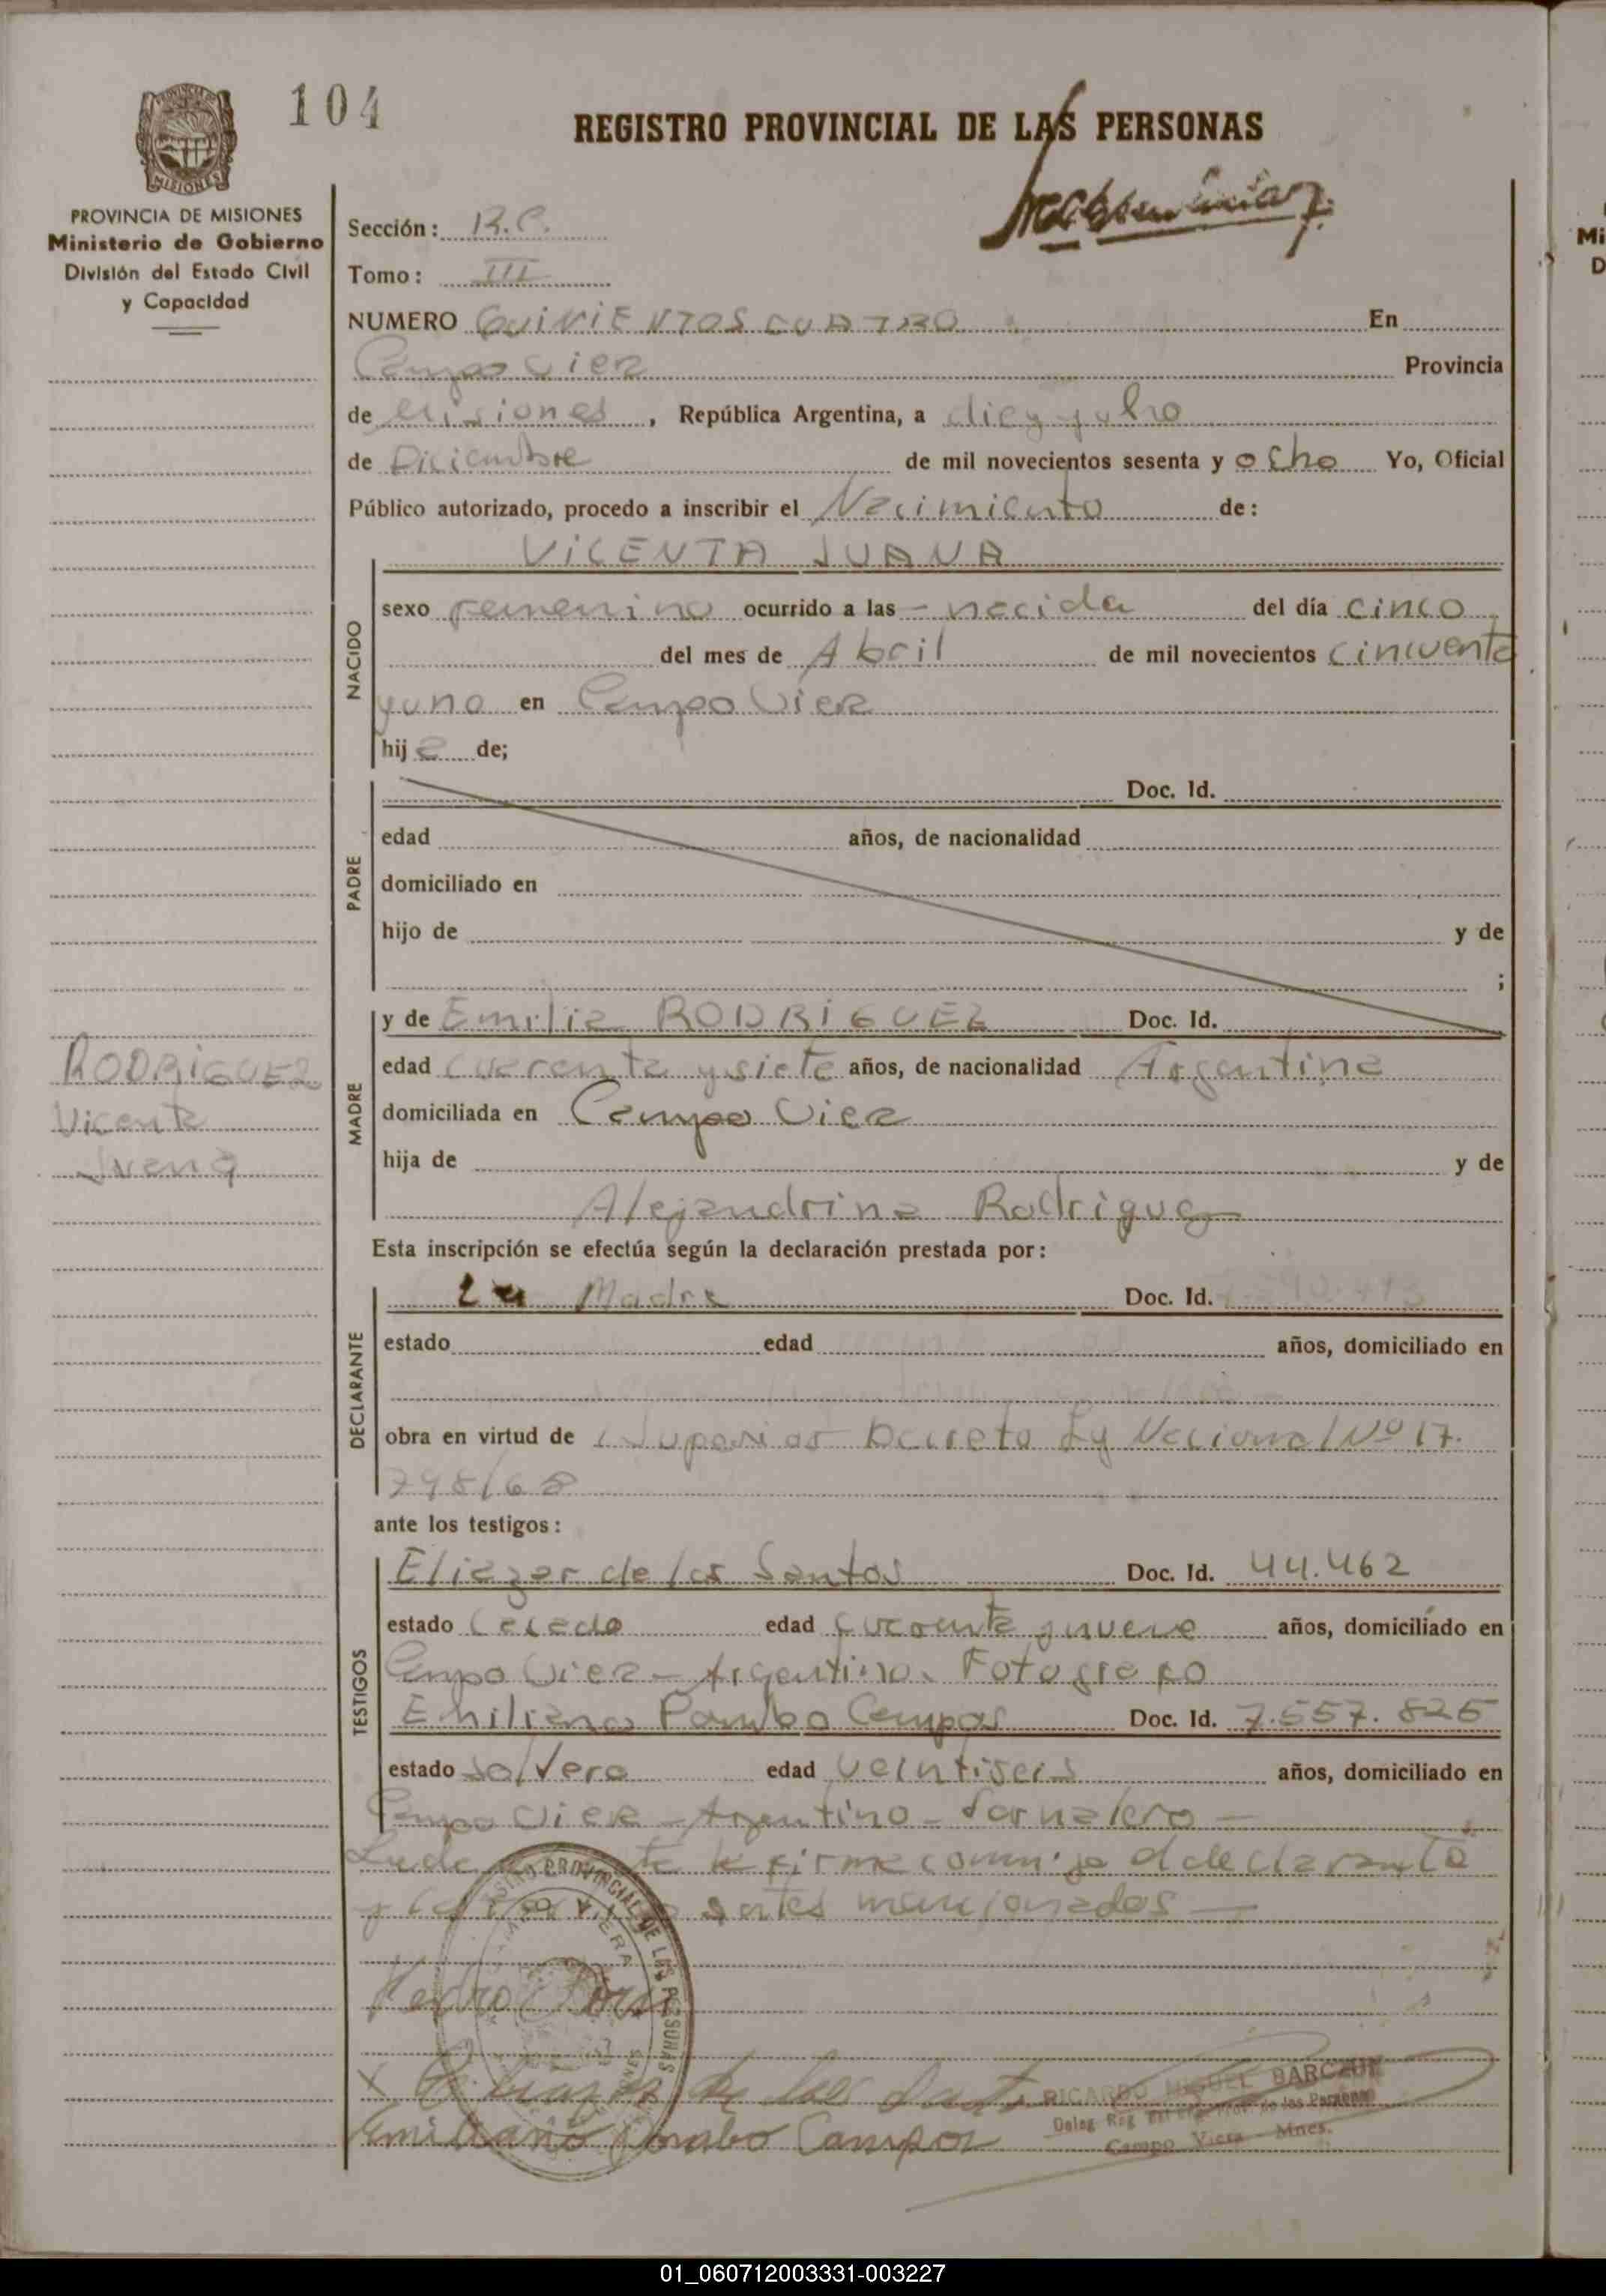 104
REGISTRO PROVINCIAL DE LAS PERSONAS
MISIONES
PROVINCIA DE MISIONES
Ministerio de Gobierno
División del Estado Civil
y Capacidad
Sección: R.C.
Tomo: III
NUMERO QUINIENTOS CUATRO En
Campo Viera Provincia
de Misiones, República Argentina, a diez y ocho
de Diciembre de mil novecientos sesenta y ocho Yo, Oficial
Público autorizado, procedo a inscribir el Nacimiento de:
VICENTA JUANA
NACIDO
sexo femenino ocurrido a las - nacida del día cinco
del mes de Abril de mil novecientos cincuenta
y uno en Campo Viera
hija de;
PADRE
Doc. Id.
edad años, de nacionalidad
domiciliado en
hijo de y de
;
MADRE
y de Emilia RODRIGUEZ Doc. Id.
edad cuarenta y siete años, de nacionalidad Argentina
domiciliada en Campo Viera
hija de y de
Alejandrina Rodriguez
RODRIGUEZ
Vicenta
Juana
Esta inscripción se efectúa según la declaración prestada por:
DECLARANTE
La Madre Doc. Id.
estado edad años, domiciliado en
obra en virtud de Decreto Ley Nacional Nº 17.
798/68
ante los testigos:
TESTIGOS
Eliezer de los Santos Doc. Id. 44.462
estado Casado edad cuarenta y nueve años, domiciliado en
Campo Viera - Argentino. Fotografo
Emiliano Pombo Campos Doc. Id. 7.557.825
estado soltero edad veintiseis años, domiciliado en
Campo Viera - Argentino - Jornalero -
la firma conmigo el declarante
y los antes mencionados -
REGISTRO PROVINCIAL DE LAS PERSONAS
CAMPO VIERA
MISIONES
de los
Emiliano Pombo Campos
RICARDO MIGUEL BARCZUK
Deleg. Reg. Prov. de las Personas
Campo Viera - Mnes.
01_060712003331-003227